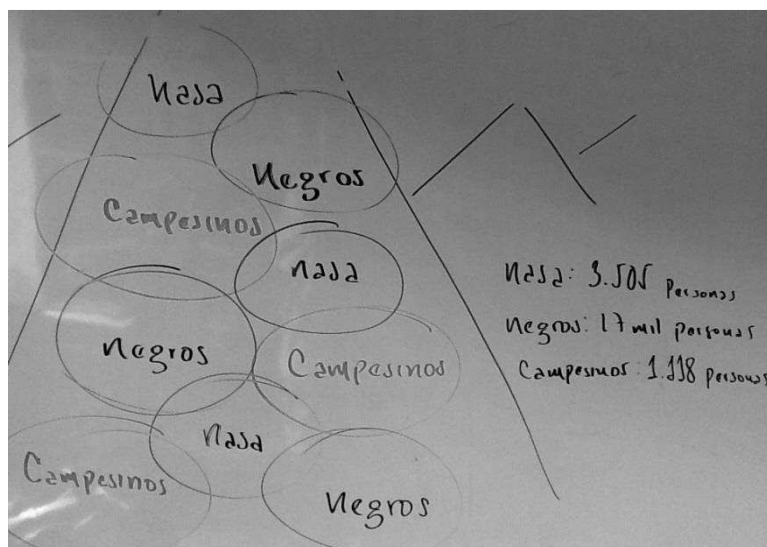 Nasa
Negros
Campesinos
nasa
negros
Campesinos
nasa
Campesinos
Negros
Nasa: 3.505 personas
Negros: 17 mil personas
Campesinos: 1.118 personas